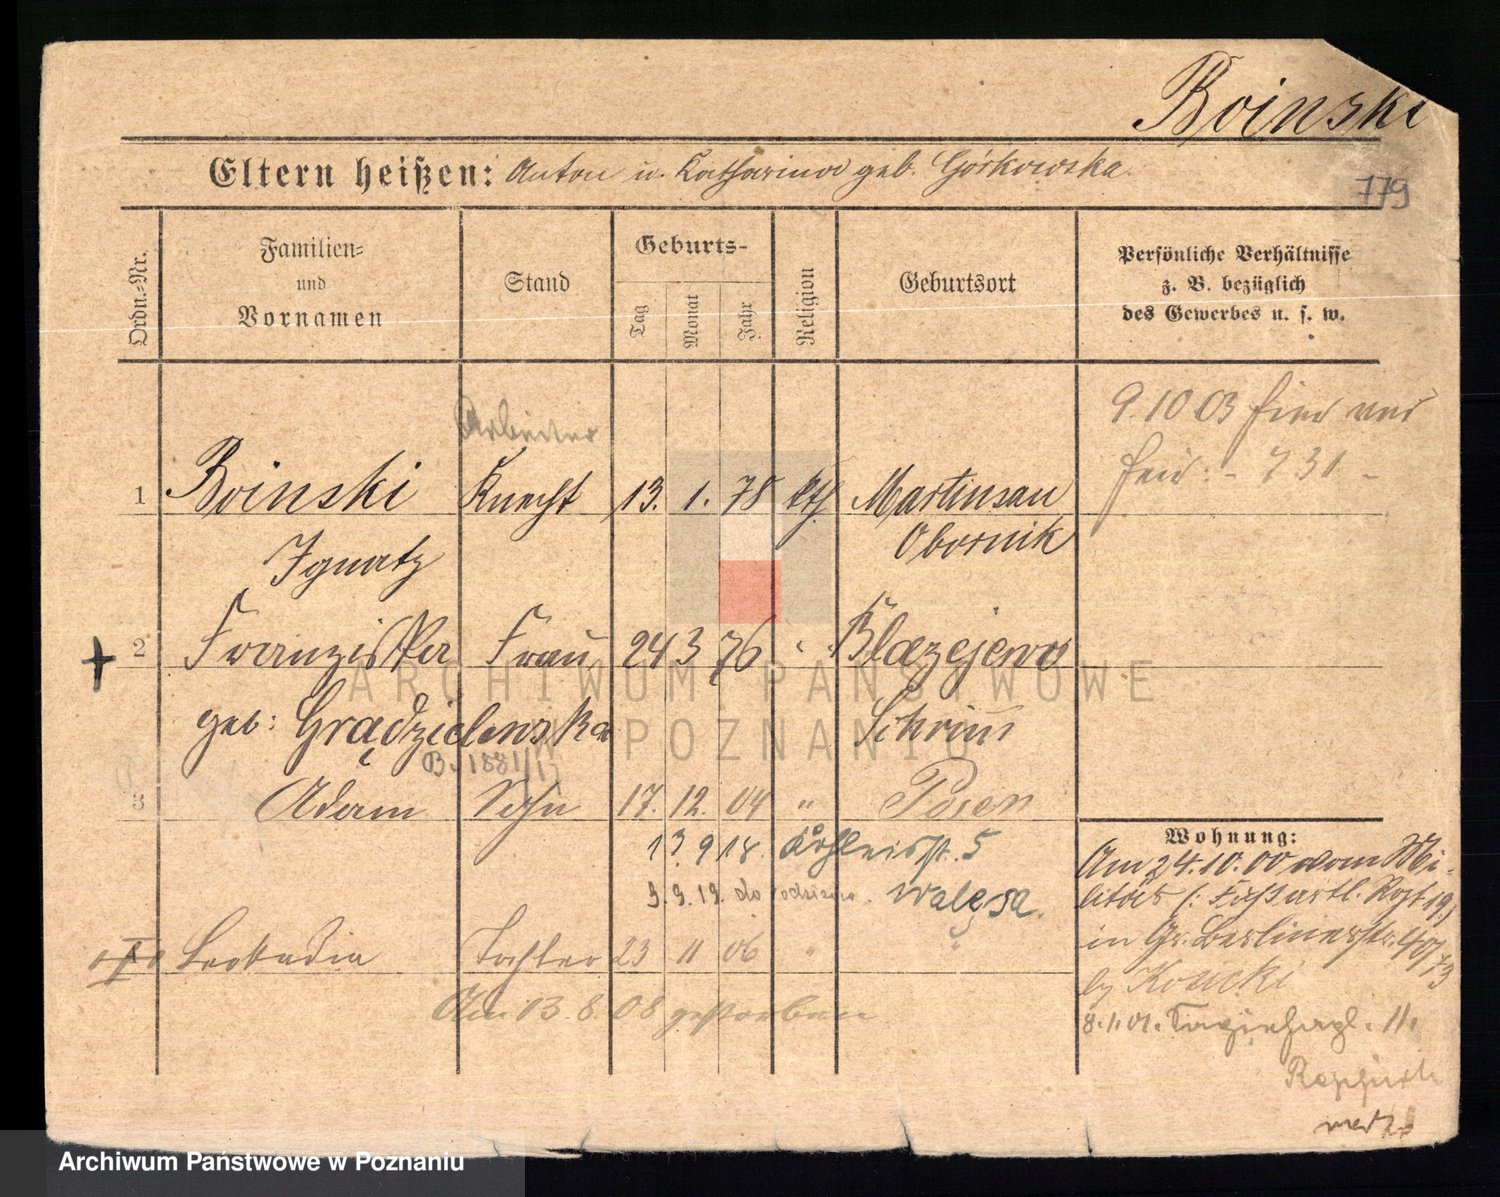 Boinski
Eltern heißen: Anton u. Katharina geb. Górkowska.
779
Ordn.-Nr.
Familien-
und
Vornamen
Stand
Geburts-
Tag
Monat
Jahr
Religion
Geburtsort
Persönliche Verhältnisse
z. B. bezüglich
des Gewerbes u. s. w.
9.10 03
731
Arbeiter
1 Boinski Knecht 13. 1. 78 kth. Martinsau
Obornik
Ignatz
2 Franziska Frau 24 3 76 " Blazejewo
geb: Grądzielewska Schrim
B. 1881/13
3 Adam Sohn 17. 12. 04 " Posen
13.9.18. 5
9.9.19. do rodziców. Wałęsa.
Leokadia Tochter 23 11 06 " "
Am 13.8.08 gestorben
Wohnung:
Am 24.10.00 vom Mi-
litär (: Fußartl. Rgt 19.)
in Gr. Berlinerstr. 40/73
by Koncki
8.1.01. 11.
ARCHIWUM PAŃSTWOWE
W POZNANIU
Archiwum Państwowe w Poznaniu